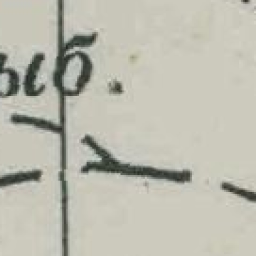 ыб.